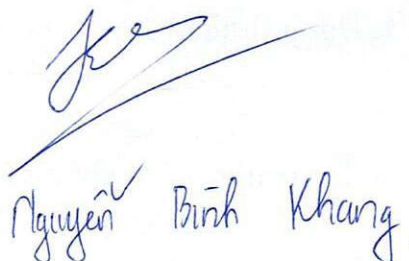 Nguyễn Bình Khang